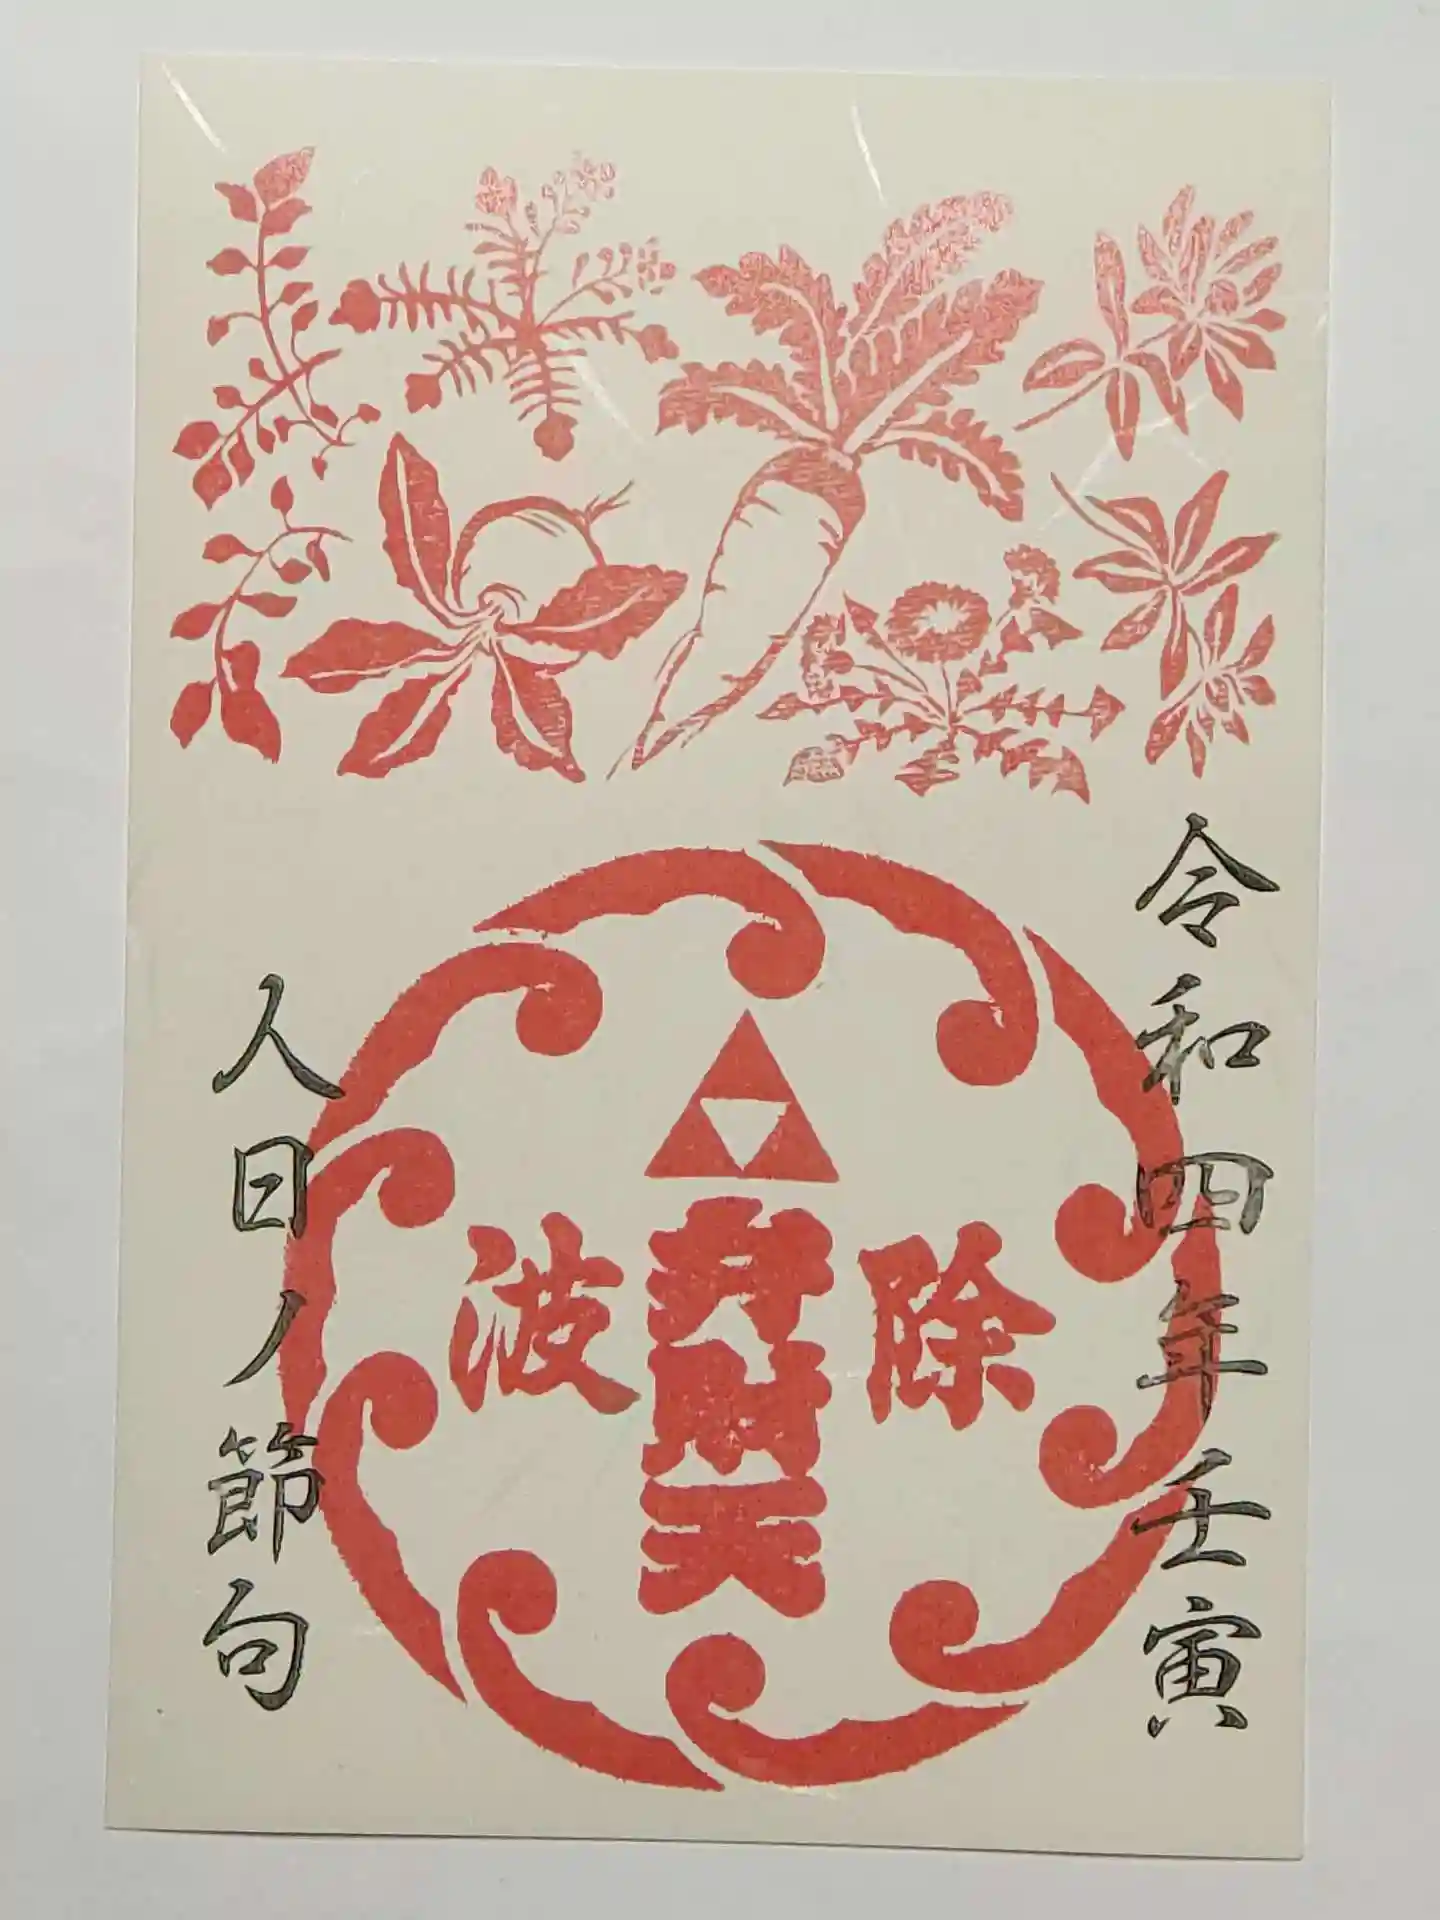 令和四年壬寅
除波
弁財天
人日ノ節句